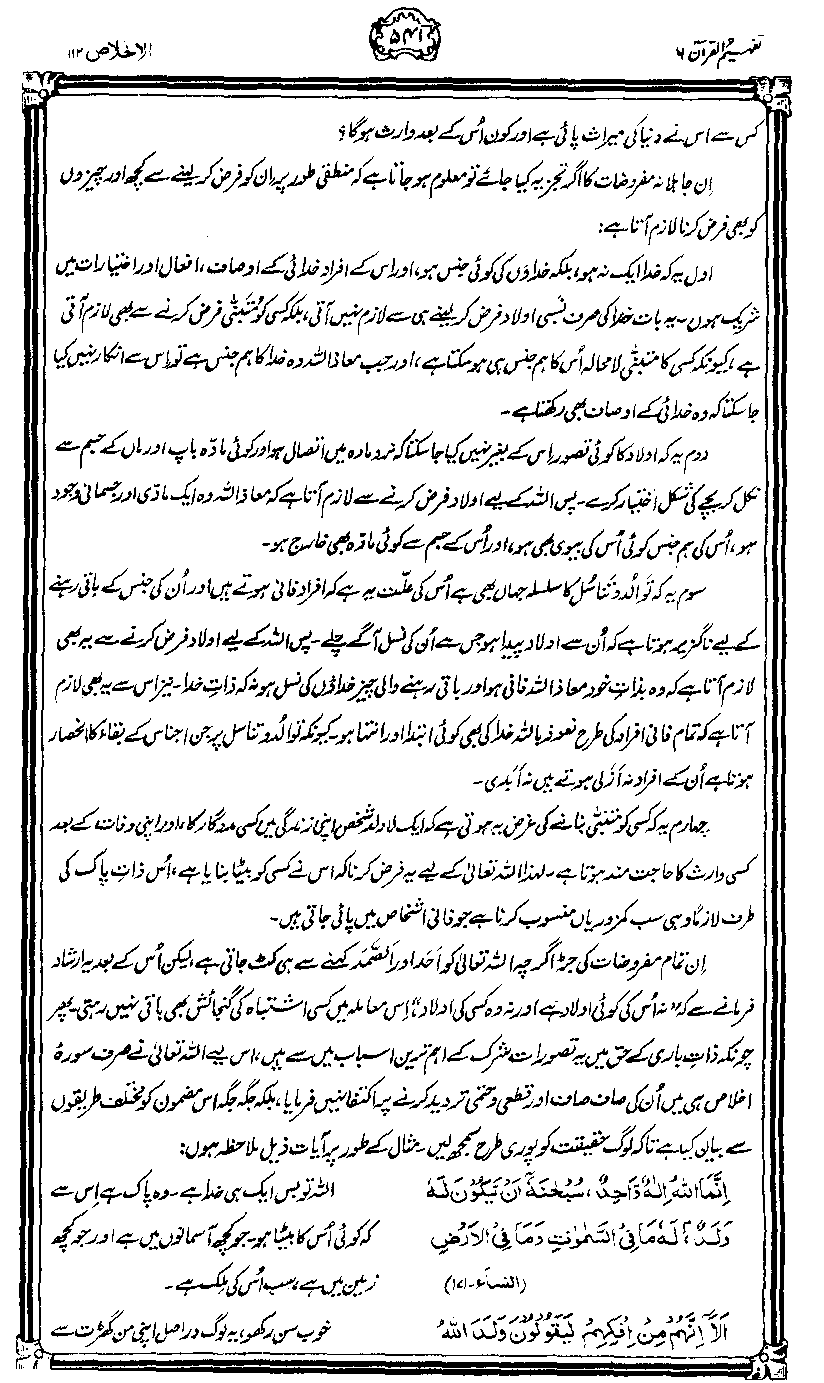 تفہیم القرآن ۶
۵۴۱
الاخلاص ۱۱۲
کس سے اس نے دنیا کی میراث پائی ہے اور کون اُس کے بعد وارث ہوگا؟
اِن جاہلانہ مفروضات کا اگر تجزیہ کیا جائے تو معلوم ہو جاتا ہے کہ منطقی طور پر ان کو فرض کر لینے سے کچھ اور چیزوں
کو بھی فرض کرنا لازم آتا ہے:
اول یہ کہ خدا ایک نہ ہو، بلکہ خداؤں کی کوئی جنس ہو، اور اس کے افراد خدائی کے اوصاف، افعال اور اختیارات میں
شریک ہوں۔ یہ بات خدا کی صرف نسبی اولاد فرض کر لینے ہی سے لازم نہیں آتی، بلکہ کسی کو مُتَبنّٰی فرض کرنے سے بھی لازم آتی
ہے، کیونکہ کسی کا متبنّٰی لامحالہ اُس کا ہم جنس ہی ہو سکتا ہے، اور جب معاذ اللہ وہ خدا کا ہم جنس ہے تو اِس سے انکار نہیں کیا
جا سکتا کہ وہ خدائی کے اوصاف بھی رکھتا ہے۔
دوم یہ کہ اولاد کا کوئی تصور اِس کے بغیر نہیں کیا جا سکتا کہ نر و مادہ میں اتصال ہو اور کوئی مادّہ باپ اور ماں کے جسم سے
نکل کر بچے کی شکل اختیار کرے۔ پس اللہ کے لیے اولاد فرض کرنے سے لازم آتا ہے کہ معاذ اللہ وہ ایک مادّی اور جسمانی وجود
ہو، اُس کی ہم جنس کوئی اُس کی بیوی بھی ہو، اور اُس کے جسم سے کوئی مادّہ بھی خارج ہو۔
سوم یہ کہ توالُد و تناسُل کا سلسلہ جہاں بھی ہے اُس کی علّت یہ ہے کہ افراد فانی ہوتے ہیں اور اُن کی جنس کے باقی رہنے
کے لیے ناگزیر ہوتا ہے کہ اُن سے اولاد پیدا ہو جس سے اُن کی نسل آگے چلے۔ پس اللہ کے لیے اولاد فرض کرنے سے یہ بھی
لازم آتا ہے کہ وہ بذاتِ خود معاذ اللہ فانی ہو اور باقی رہنے والی چیز خداؤں کی نسل ہو نہ کہ ذاتِ خدا۔ نیز اس سے یہ بھی لازم
آتا ہے کہ تمام فانی افراد کی طرح نعوذ باللہ خدا کی بھی کوئی ابتدا اور انتہا ہو۔ کیونکہ توالُد و تناسل پر جن اجناس کے بقاء کا انحصار
ہوتا ہے اُن کے افراد نہ اَزلی ہوتے ہیں نہ اَبدی۔
چہارم یہ کہ کسی کو متبنّٰی بنانے کی غرض یہ ہوتی ہے کہ ایک لا ولد شخص اپنی زندگی میں کسی مددگار کا، اور اپنی وفات کے بعد
کسی وارث کا حاجت مند ہوتا ہے۔ لہٰذا اللہ تعالیٰ کے لیے یہ فرض کرنا کہ اس نے کسی کو بیٹا بنایا ہے، اُس ذاتِ پاک کی
طرف لازماً وہی سب کمزوریاں منسوب کرنا ہے جو فانی اشخاص میں پائی جاتی ہیں۔
اِن تمام مفروضات کی جڑ اگرچہ اللہ تعالیٰ کو اَحَد اور اَلصَّمَد کہنے سے ہی کٹ جاتی ہے، لیکن اُس کے بعد یہ ارشاد
فرمانے سے کہ ”نہ اُس کی کوئی اولاد ہے اور نہ وہ کسی کی اولاد“، اِس معاملہ میں کسی اشتباہ کی گنجائش بھی باقی نہیں رہتی۔ پھر
چونکہ ذاتِ باری کے حق میں یہ تصورات شرک کے اہم ترین اسباب میں سے ہیں، اس لیے اللہ تعالیٰ نے صرف سورۂ
اخلاص ہی میں اُن کی صاف صاف اور قطعی و حتمی تردید کرنے پر اکتفا نہیں فرمایا، بلکہ جگہ جگہ اس مضمون کو مختلف طریقوں
سے بیان کیا ہے تاکہ لوگ حقیقت کو پوری طرح سمجھ لیں۔ مثال کے طور پر آیات ذیل ملاحظہ ہوں:
اِنَّمَا اللهُ اِلٰهٌ وَّاحِدٌ، سُبْحٰنَهٗٓ اَنْ يَّكُوْنَ لَهٗ
وَلَدٌ، لَهٗ مَا فِي السَّمٰوٰتِ وَمَا فِي الْاَرْضِ
(النساء۔۱۷۱)
اللہ تو بس ایک ہی خدا ہے۔ وہ پاک ہے اِس سے
کہ کوئی اُس کا بیٹا ہو۔ جو کچھ آسمانوں میں ہے اور جو کچھ
زمین میں ہے، سب اُس کی مِلک ہے۔
اَلَآ اِنَّهُمْ مِّنْ اِفْكِهِمْ لَيَقُوْلُوْنَ وَلَدَ اللهُ
خوب سن رکھو، یہ لوگ دراصل اپنی من گھڑت سے